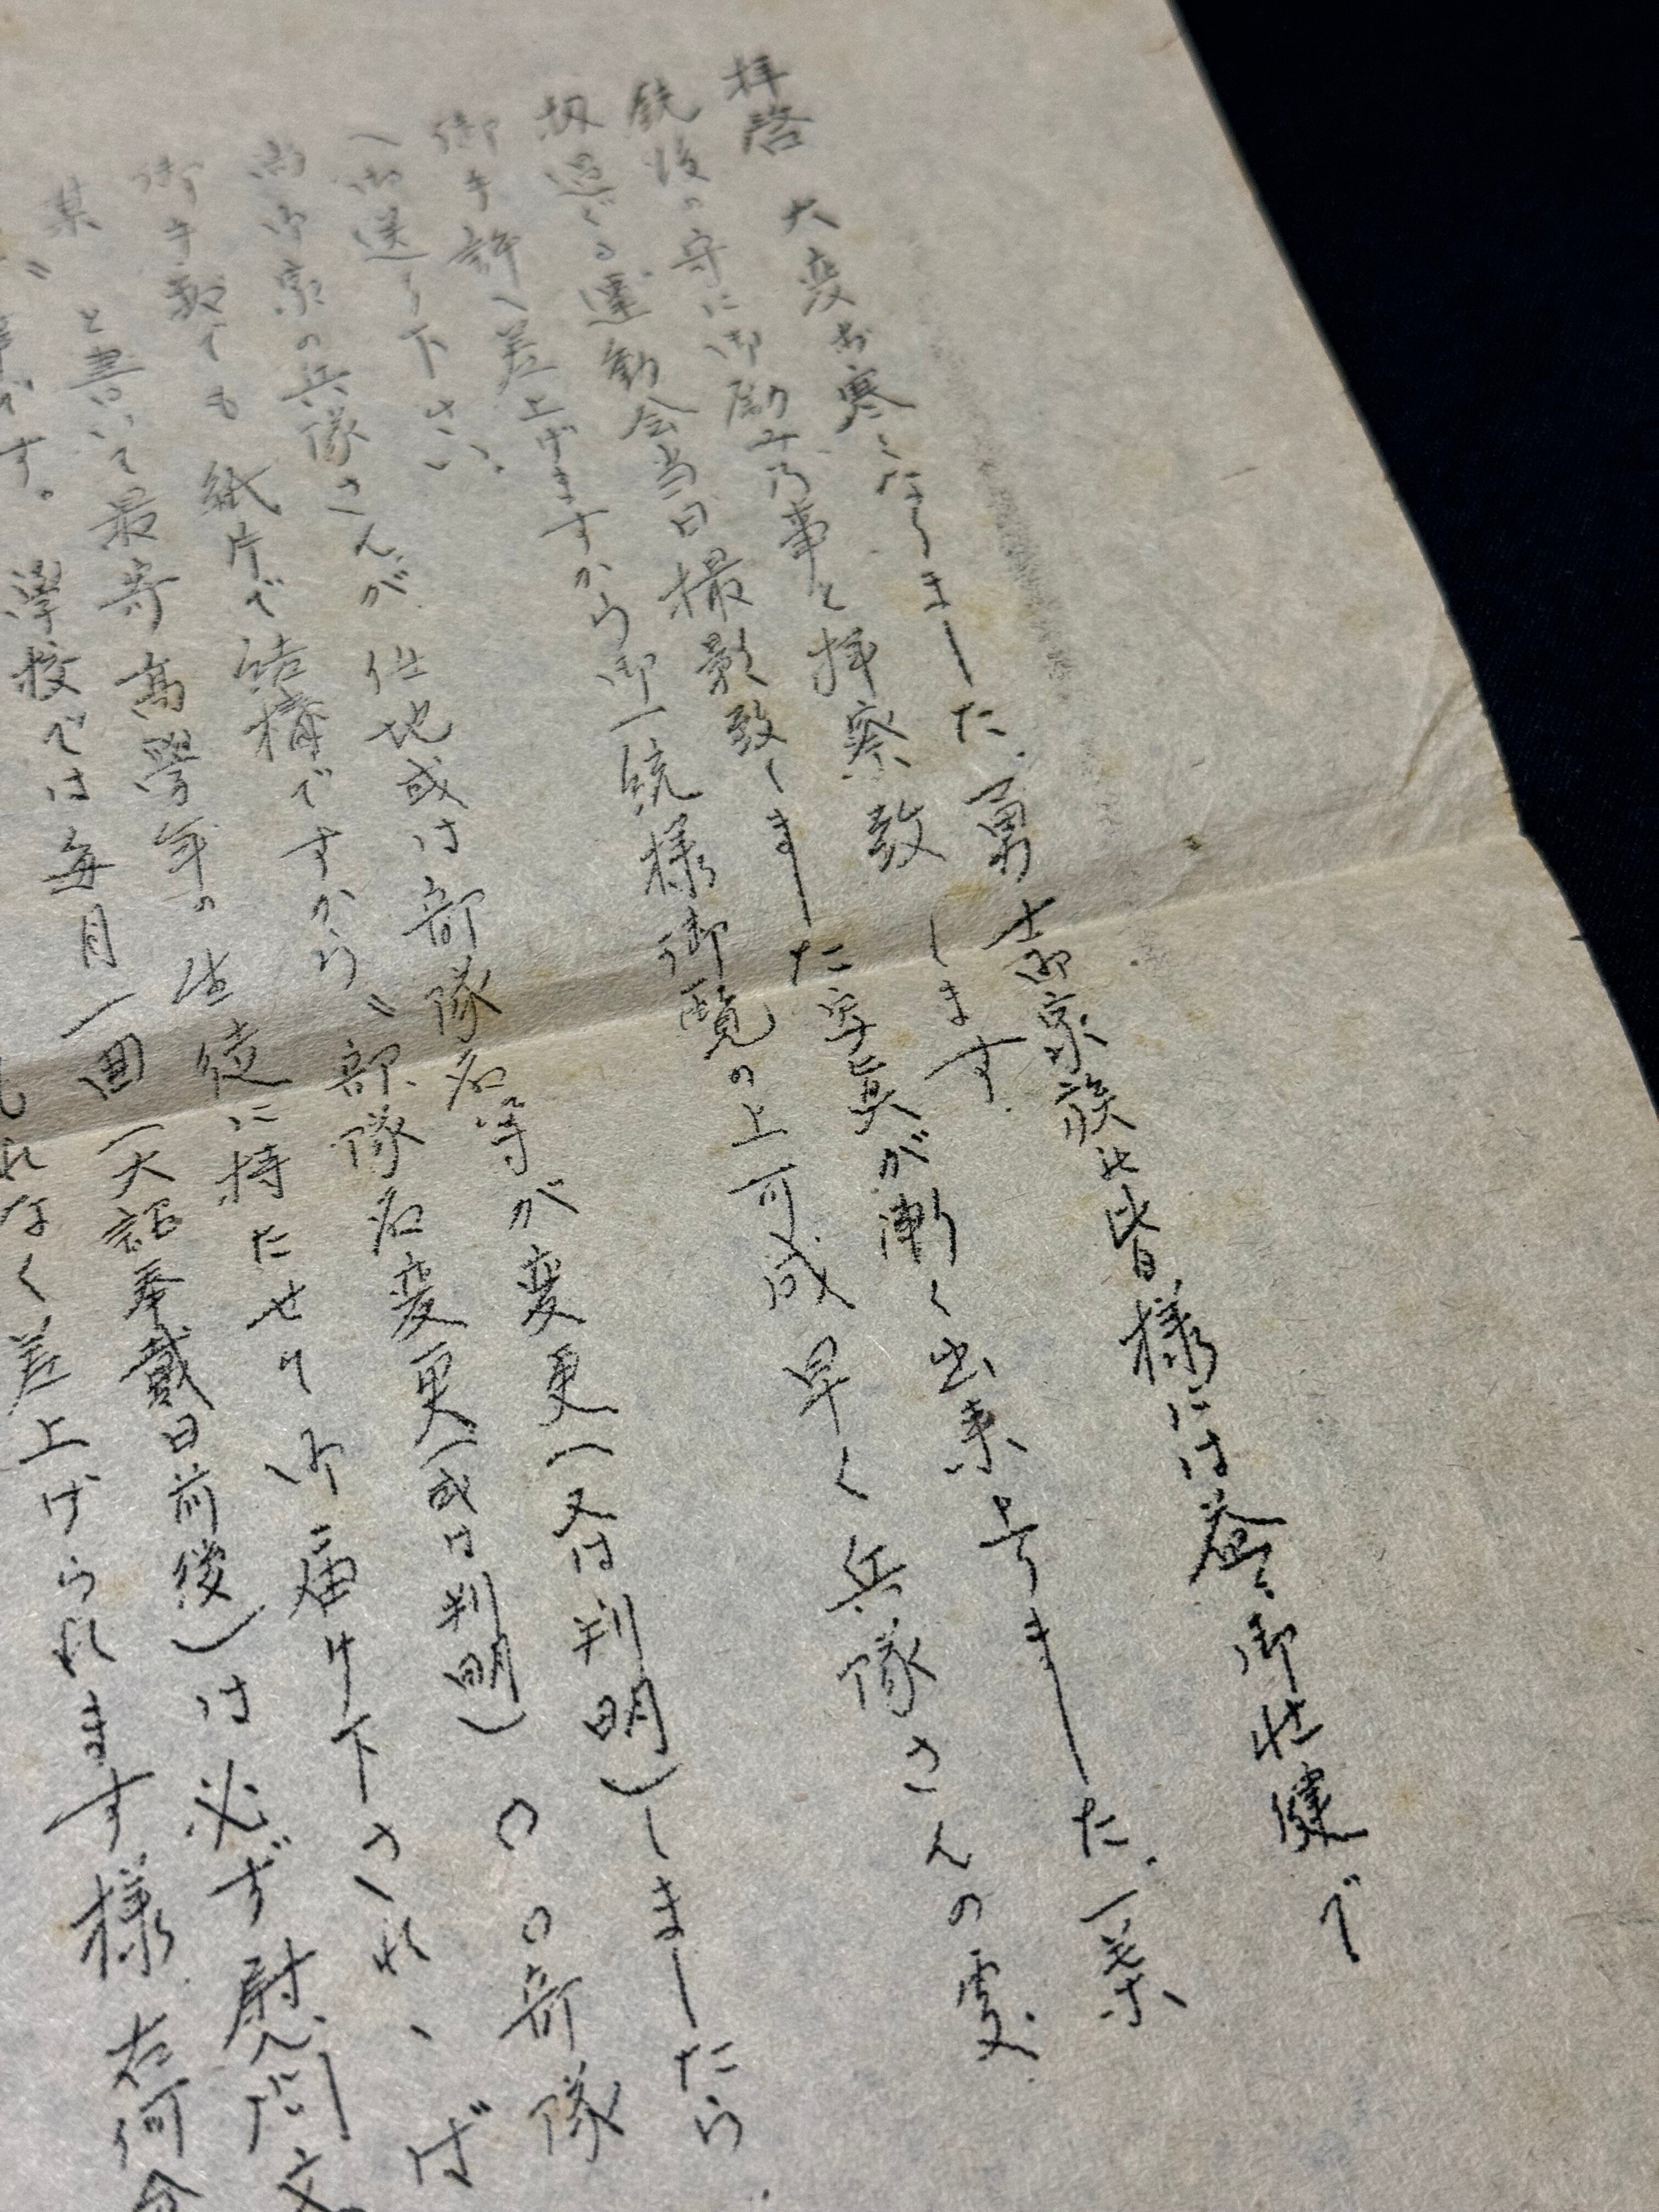 拝啓 大変お寒くなりました、勇士御家族の皆様には益々御壮健で
銃後の守に御励み乃事と拝察致します、
扨過ぐる運動会当日撮影致しました写真が漸く出来上りました、一葉
御手許へ差上げますから御一統様御覧の上可成早く兵隊さんの処
へ御送り下さい、
尚御家の兵隊さんが任地或は部隊名等が変更(又は判明)しましたら
御手数でも紙片で結構ですから〝部隊名変更(或は判明)〇〇部隊
某〟と書いて最寄高学年の生徒に持たせて御届け下されゝば
です。学校では毎月一回(大詔奉戴日前後)は必ず慰問文
れなく差上げられます様 右何分